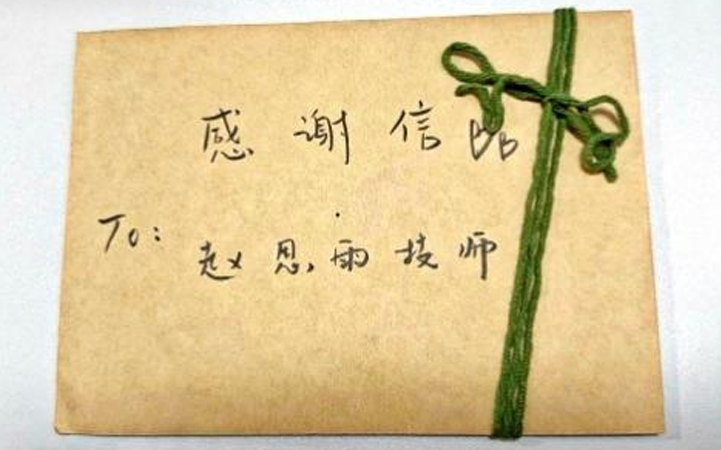 感谢信
To: 赵思雨技师